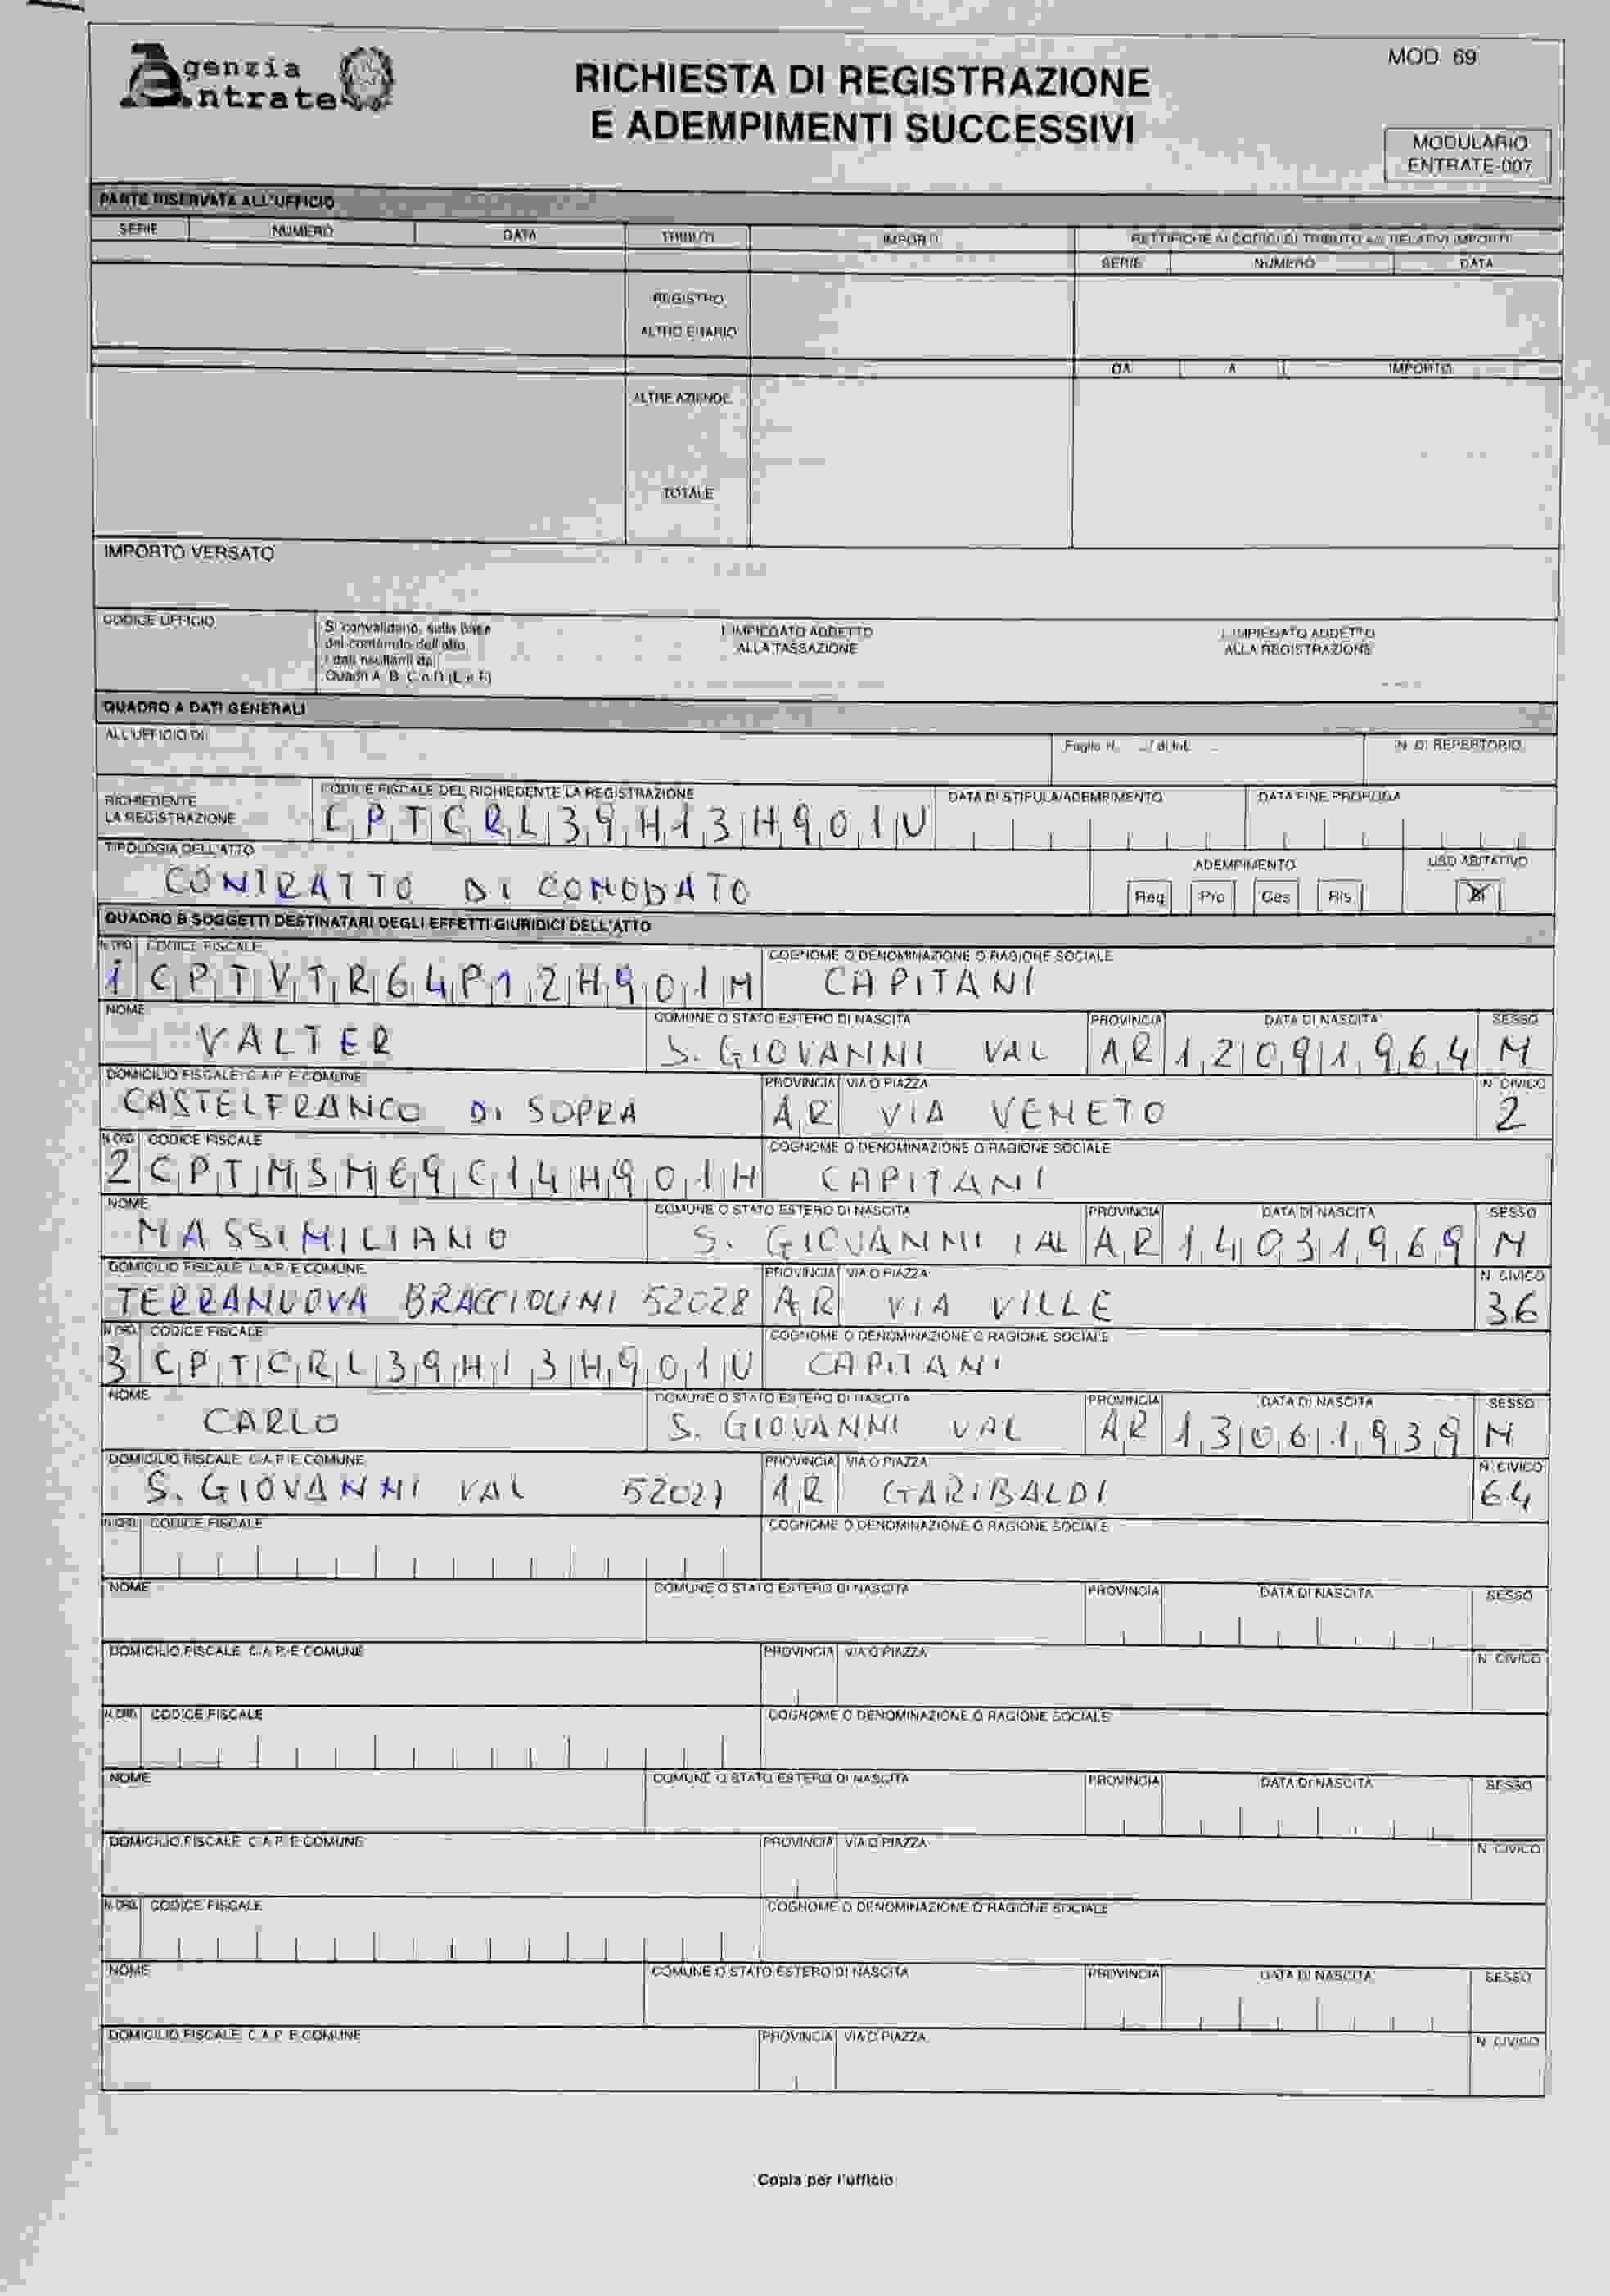 Agenzia
Entrate
RICHIESTA DI REGISTRAZIONE
E ADEMPIMENTI SUCCESSIVI
MOD. 69
MODULARIO
ENTRATE-007
PARTE RISERVATA ALL'UFFICIO
SERIE NUMERO DATA TRIBUTI IMPORTI RETTIFICHE AI CODICI DI TRIBUTO RELATIVI IMPORTI
SERIE NUMERO DATA
REGISTRO
ALTRO ERARIO
DA A IMPORTO
ALTRE AZIENDE
TOTALE
IMPORTO VERSATO
CODICE UFFICIO
Si convalidano, sulla base
del contenuto dell'atto,
i dati risultanti dai
Quadri A, B, C e D (E e F)
L'IMPIEGATO ADDETTO
ALLA TASSAZIONE
L'IMPIEGATO ADDETTO
ALLA REGISTRAZIONE
QUADRO A DATI GENERALI
ALL'UFFICIO DI Foglio N. di tot. N. DI REPERTORIO
RICHIEDENTE
LA REGISTRAZIONE
CODICE FISCALE DEL RICHIEDENTE LA REGISTRAZIONE DATA DI STIPULA/ADEMPIMENTO DATA FINE PROROGA
CPTCRL39H13H901U
TIPOLOGIA DELL'ATTO ADEMPIMENTO USO ABITATIVO
CONTRATTO DI COMODATO Reg Pro Ces Ris. SI
QUADRO B SOGGETTI DESTINATARI DEGLI EFFETTI GIURIDICI DELL'ATTO
N.ORD. CODICE FISCALE COGNOME O DENOMINAZIONE O RAGIONE SOCIALE
1 CPTVTR64P12H901M CAPITANI
NOME COMUNE O STATO ESTERO DI NASCITA PROVINCIA DATA DI NASCITA SESSO
VALTER S. GIOVANNI VAL AR 12091964 M
DOMICILIO FISCALE: C.A.P. E COMUNE PROVINCIA VIA O PIAZZA N. CIVICO
CASTELFRANCO DI SOPRA AR VIA VENETO 2
N.ORD. CODICE FISCALE COGNOME O DENOMINAZIONE O RAGIONE SOCIALE
2 CPTMSM69C14H901H CAPITANI
NOME COMUNE O STATO ESTERO DI NASCITA PROVINCIA DATA DI NASCITA SESSO
MASSIMILIANO S. GIOVANNI AR 14031969 M
DOMICILIO FISCALE: C.A.P. E COMUNE PROVINCIA VIA O PIAZZA N. CIVICO
TERRANUOVA BRACCIOLINI 52028 AR VIA VILLE 36
N.ORD. CODICE FISCALE COGNOME O DENOMINAZIONE O RAGIONE SOCIALE
3 CPTCRL39H13H901U CAPITANI
NOME COMUNE O STATO ESTERO DI NASCITA PROVINCIA DATA DI NASCITA SESSO
CARLO S. GIOVANNI VAL AR 13061939 M
DOMICILIO FISCALE: C.A.P. E COMUNE PROVINCIA VIA O PIAZZA N. CIVICO
S. GIOVANNI VAL 52027 AR GARIBALDI 64
N.ORD. CODICE FISCALE COGNOME O DENOMINAZIONE O RAGIONE SOCIALE
NOME COMUNE O STATO ESTERO DI NASCITA PROVINCIA DATA DI NASCITA SESSO
DOMICILIO FISCALE: C.A.P. E COMUNE PROVINCIA VIA O PIAZZA N. CIVICO
N.ORD. CODICE FISCALE COGNOME O DENOMINAZIONE O RAGIONE SOCIALE
NOME COMUNE O STATO ESTERO DI NASCITA PROVINCIA DATA DI NASCITA SESSO
DOMICILIO FISCALE: C.A.P. E COMUNE PROVINCIA VIA O PIAZZA N. CIVICO
N.ORD. CODICE FISCALE COGNOME O DENOMINAZIONE O RAGIONE SOCIALE
NOME COMUNE O STATO ESTERO DI NASCITA PROVINCIA DATA DI NASCITA SESSO
DOMICILIO FISCALE: C.A.P. E COMUNE PROVINCIA VIA O PIAZZA N. CIVICO
Copia per l'ufficio